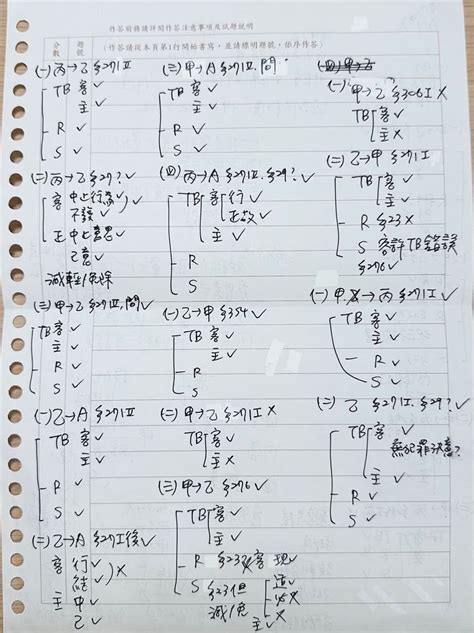 作答前務請詳閱作答注意事項及試題說明
分數
題號
(作答請從本頁第1行開始書寫,並請標明題號,依序作答)
(一) 丙→乙 §271I ✓
TB 客 ✓
主 ✓
R ✓
S ✓
(二) 丙→乙 §27? ✓
客 中止行為 ✓
不發 ✓
主 中止意思 ✓
己意 ✓
減輕/免除
(三) 甲→乙 §271II, 問 ✓
TB 客 ✓
主 ✓
R ✓
S ✓
(一) 乙→A §271II
TB 客 ✓
主 ✓
R ✓
S ✓
(二) 乙→A §271I後 ✓
客 行 ✓
結 ✓ ) X
主 中 ✓
乙 ✓
(三) 甲→A §271II. 問 ✓
TB 客 ✓
主 ✓
R ✓
S ✓
(四) 丙→A §271II. §29? ✓
TB 客 行 ✓
正故 ✓
主 ✓
R
S
(一) 乙→甲 §354 ✓
TB 客 ✓
主 ✓
R
S
(二) 甲→乙 §271I X
TB 客 ✓
主 X
(三) 甲→乙 §276 ✓
TB 客 ✓
主 ✓
R §23 客 現 ✓
S §23但 減/免
必 X
主 X
(一) 甲→乙 §306I X
TB 客 ✓
主 X
(二) 乙→甲 §271I
TB 客 ✓
主 ✓
R §23 X
S 容許TB錯誤
§276 ✓
(一) 甲→丙 §271I ✓
TB 客 ✓
主 ✓
R ✓
S ✓
(二) 乙 §271I. §29? ✓
TB 客 ✓
無犯罪決意?
主 ✓
R ✓
S ✓